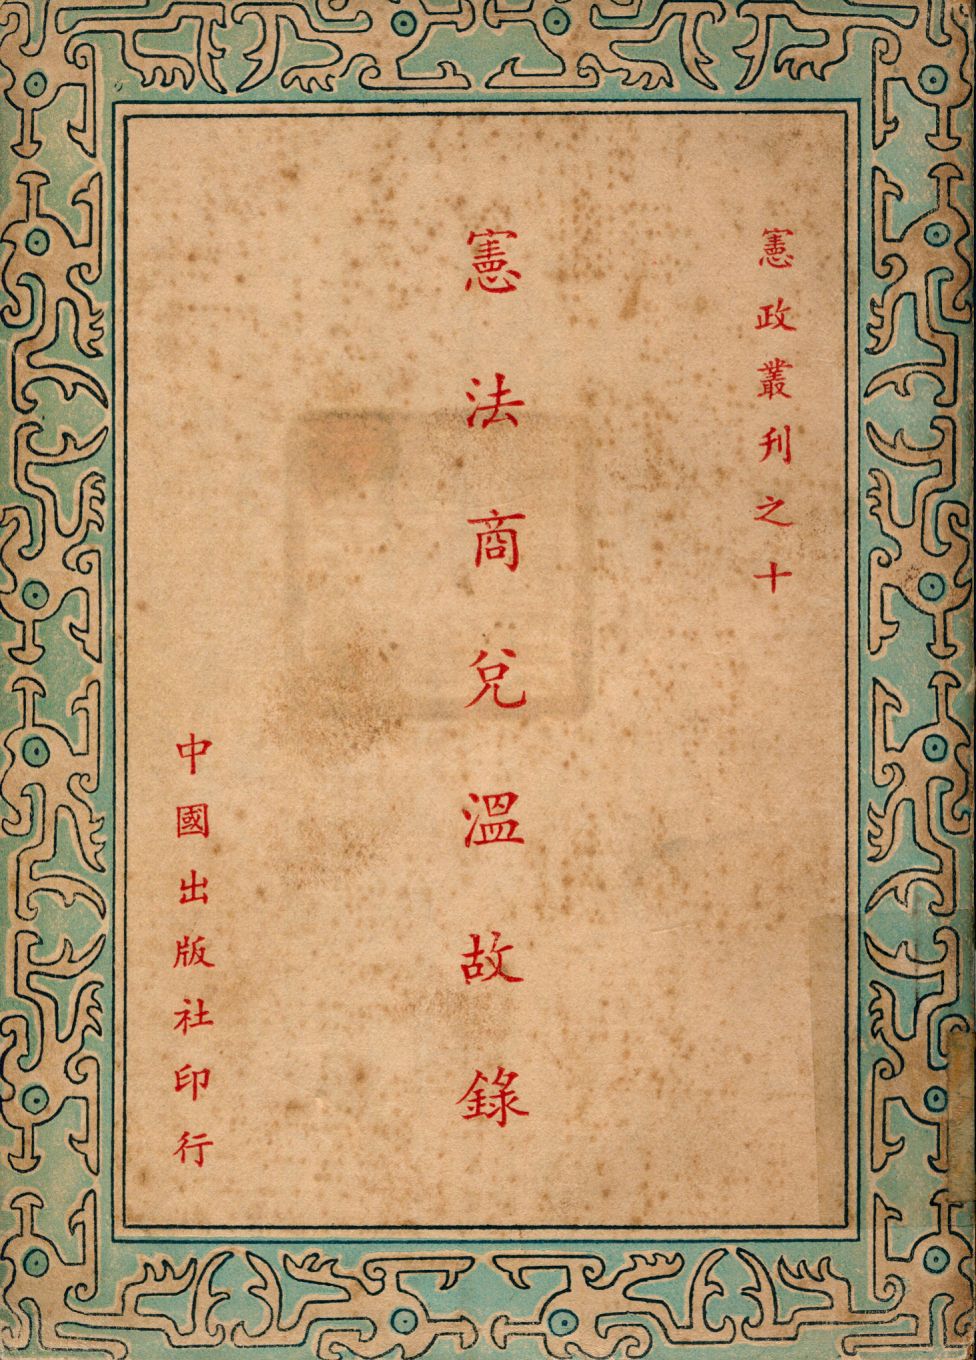 憲政叢刊之十
憲法商兌溫故錄
中國出版社印行